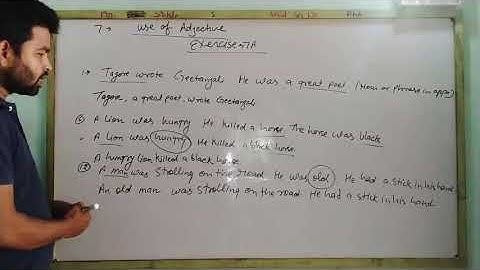 7. Use of Adjective
Exercise-7A
1. Tagore wrote Geetanjali He was a great poet. (Noun or phrase in appo)
Tagore, a great poet, wrote Geetanjali
A lion was hungry He killed a horse. The horse was black
A Lion was hungry He killed a black horse.
A hungry lion killed a black horse
A man was strolling on the road. He was old. He had a stick in his hand
An old man was strolling on the road He had a stick in his hand